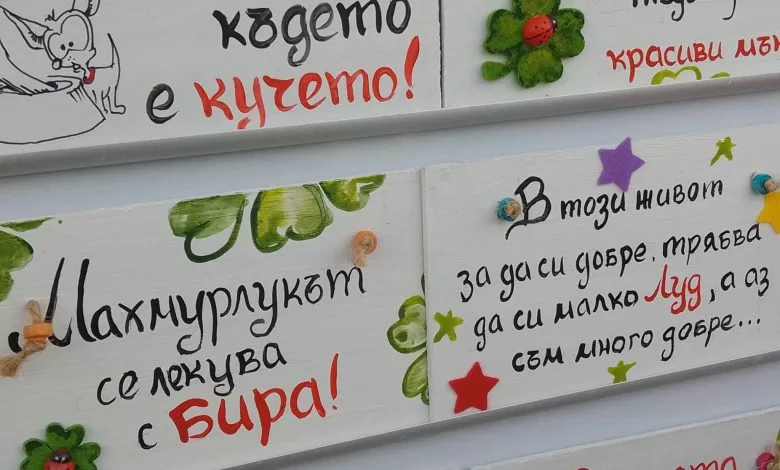 където
е кучето!
красиви
Махмурлукът
се лекува
с Бира!
В този живот
за да си добре, трябва
да си малко Луд, а аз
съм много добре...